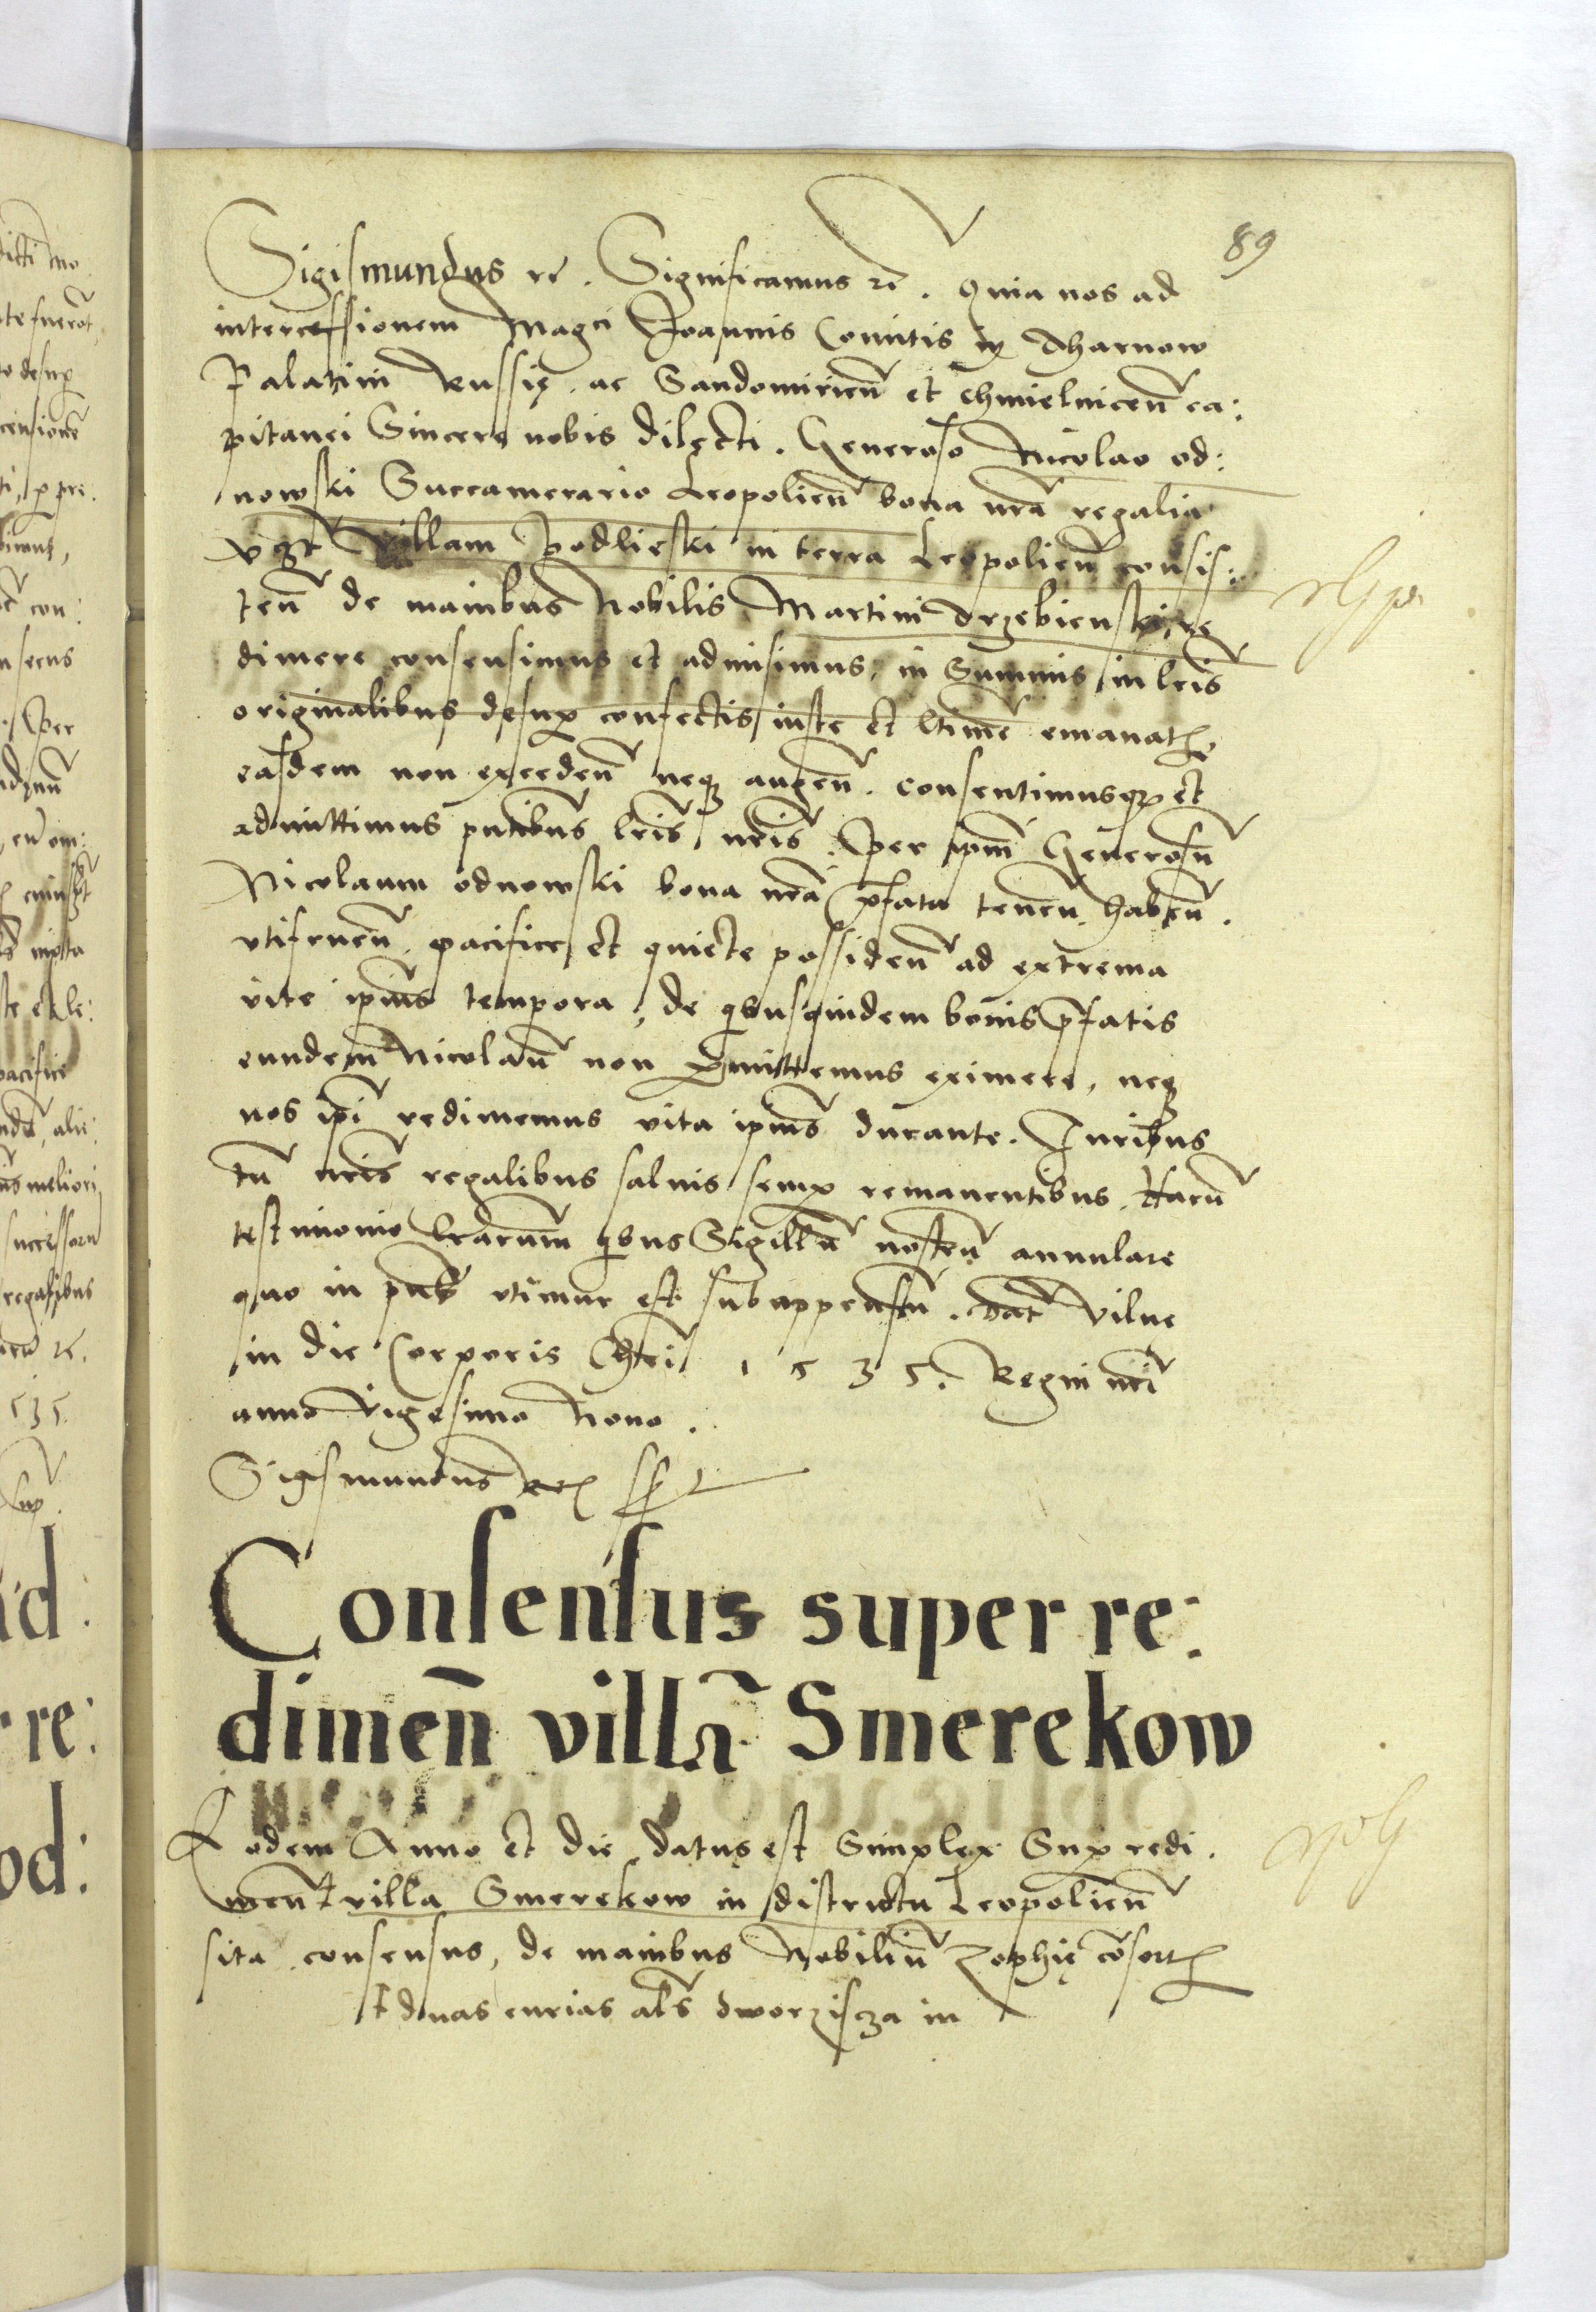 89
Sigismundus rc̃. Significamus rc̃. Quia nos ad
intercessionem Magci Joannis Comitis in Tharnow
Palatini Russię. ac Sandomirieñ et Chmielniceñ ca:
pitanei Sincere nobis dilecti. Generoso Nicolao od:
nowski Succamerario Leopolieñ bona nr̃a regalia
vzt villam Podlieski in terra Leopolieñ consis:
teñ de manibus Nobilis Martini Trzebienski, re
dimere consensimus et admisimus, in Summis in lr̃is
originalibus desup confectis iuste et ltime emanatis
easdem non excedeñ neqz augeñ. Consentimusqz et
admittimus pñtibus lr̃is nr̃is. Per ipm̃ Generosũ
Nicolaum odnowski bona nr̃a p̃fata teneñ. habeñ.
vtifrueñ. pacifice et quiete possideñ ad extrema
vite ipiũs tempora, de qbusquidem bonis p̃fatis
eundem Nicolaũ non pmittemus eximere, neqz
nos ipi redimemus vita ipiũs durante. Juribus
tñ nr̃is regalibus saluis semp remanentibus. Harũ
testimonio lr̃arum qbus Sigillũ nostrũ annulare
quo in pñtĩ vtimur est subappensũ. Dat̃ Vilnę
in die Corporis Chr̃i 1535. Regni nr̃i
anno Vigesimo Nono.
Sigismundus Rex sst
Consensus super re:
dimeñ villã Smerekow
Eodem Anno et die datus est Simplex Sup redi.
meñ ϯ villa Smerekow in districtu Leopolieñ
sita consensus, de manibus Nobiliũ Zophię cõsortis
ϯ duas curias al̃s dworziscza in